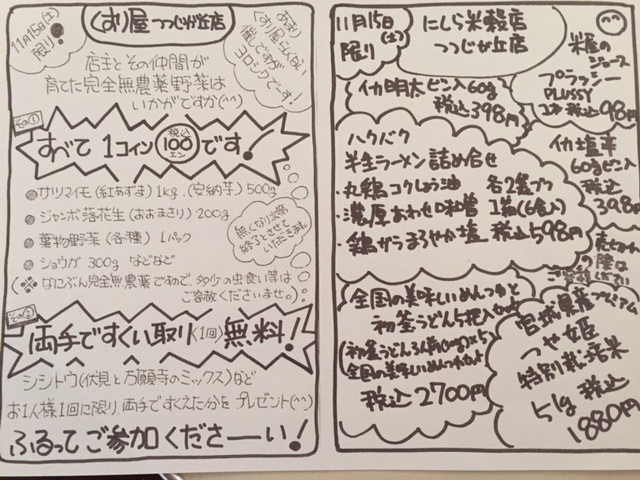 11月15日(土)
限り!
くすり屋 つつじが丘店
あまり
くすり屋らしくない
催しですが
ヨロシクです!
店主とその仲間が
育てた完全無農薬野菜は
いかがですか(^^)
その①
すべて 1コイン 税込 100エン です!
サツマイモ(紅あずま)1kg.(安納芋)500g
ジャンボ落花生(おおまさり)200g
葉物野菜(各種) 1パック
ショウガ 300g などなど
無くなり次第
終了とさせて
いただきます。
(※なにぶん完全無農薬ですので、多少の虫食い等は
ご容赦くださいませ。)
その②
両手ですくい取り(1回)無料!
シシトウ(伏見と万願寺のミックス)など
お1人様1回に限り、両手ですくえた分をプレゼント(^^)
ふるってご参加くださーい!
11月15日(土)
限り
にしら米穀店
つつじが丘店
米屋のジュース
プラッシー
PLUSSY
1本 税込 98円
イカ明太ビン入60g
税込398円
イカ塩辛
60gビン入
税込
398円
ハクバク
半生ラーメン詰め合せ
・丸鶏コクしょう油
・濃厚あわせ味噌
・鶏がらまろやか塩
各2袋づつ
1箱(6食入)
税込598円
売切れ
の際は
ご容赦ください
全国の美味しいめんつゆと
初釜うどん5把入セット
税込2700円
宮城県産プレミアム
つや姫
特別栽培米
5kg 税込
1880円